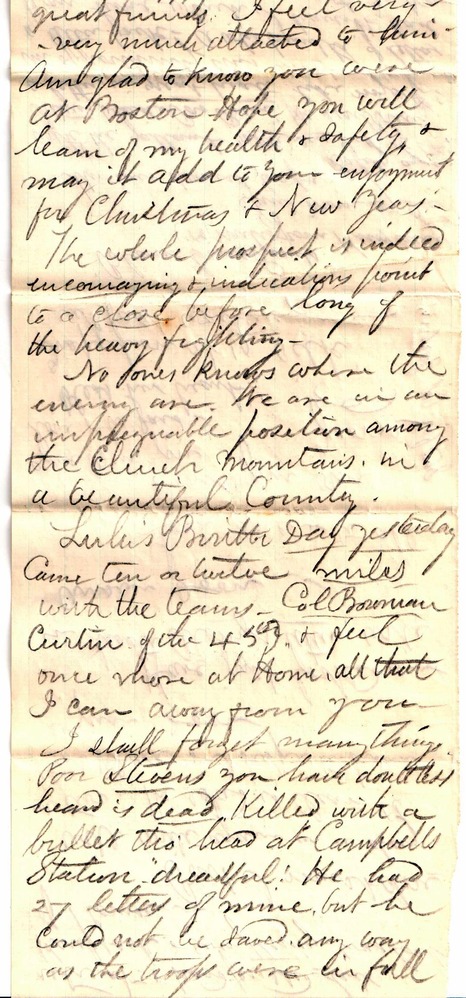 great friends. I feel very -
- very much attached to him -
Am glad to know you were
at Boston Hope you will
learn of my health & safety, &
may it add to your enjoyment
for Christmas & New Years -
The whole prospect is indeed
encouraging & indications point
to a close before long of
the heavy fighting -
No ones knows where the
enemy are. We are in an
impregnable position among
the Clinch Mountains. in
a beautiful Country.
Lulis Birth Day yesterday
Came ten or twelve miles
with the teams - Col Bowman
Curtin of the 45th & feel
once more at Home. all that
I can away from you -
I shall forget many things.
Poor Stevens you have doubtless
heard is dead. Killed with a
bullet thro' head at Campbells
Station - dreadful! He had
27 letters of mine, but he
Could not be saved any way
as the troops were in full